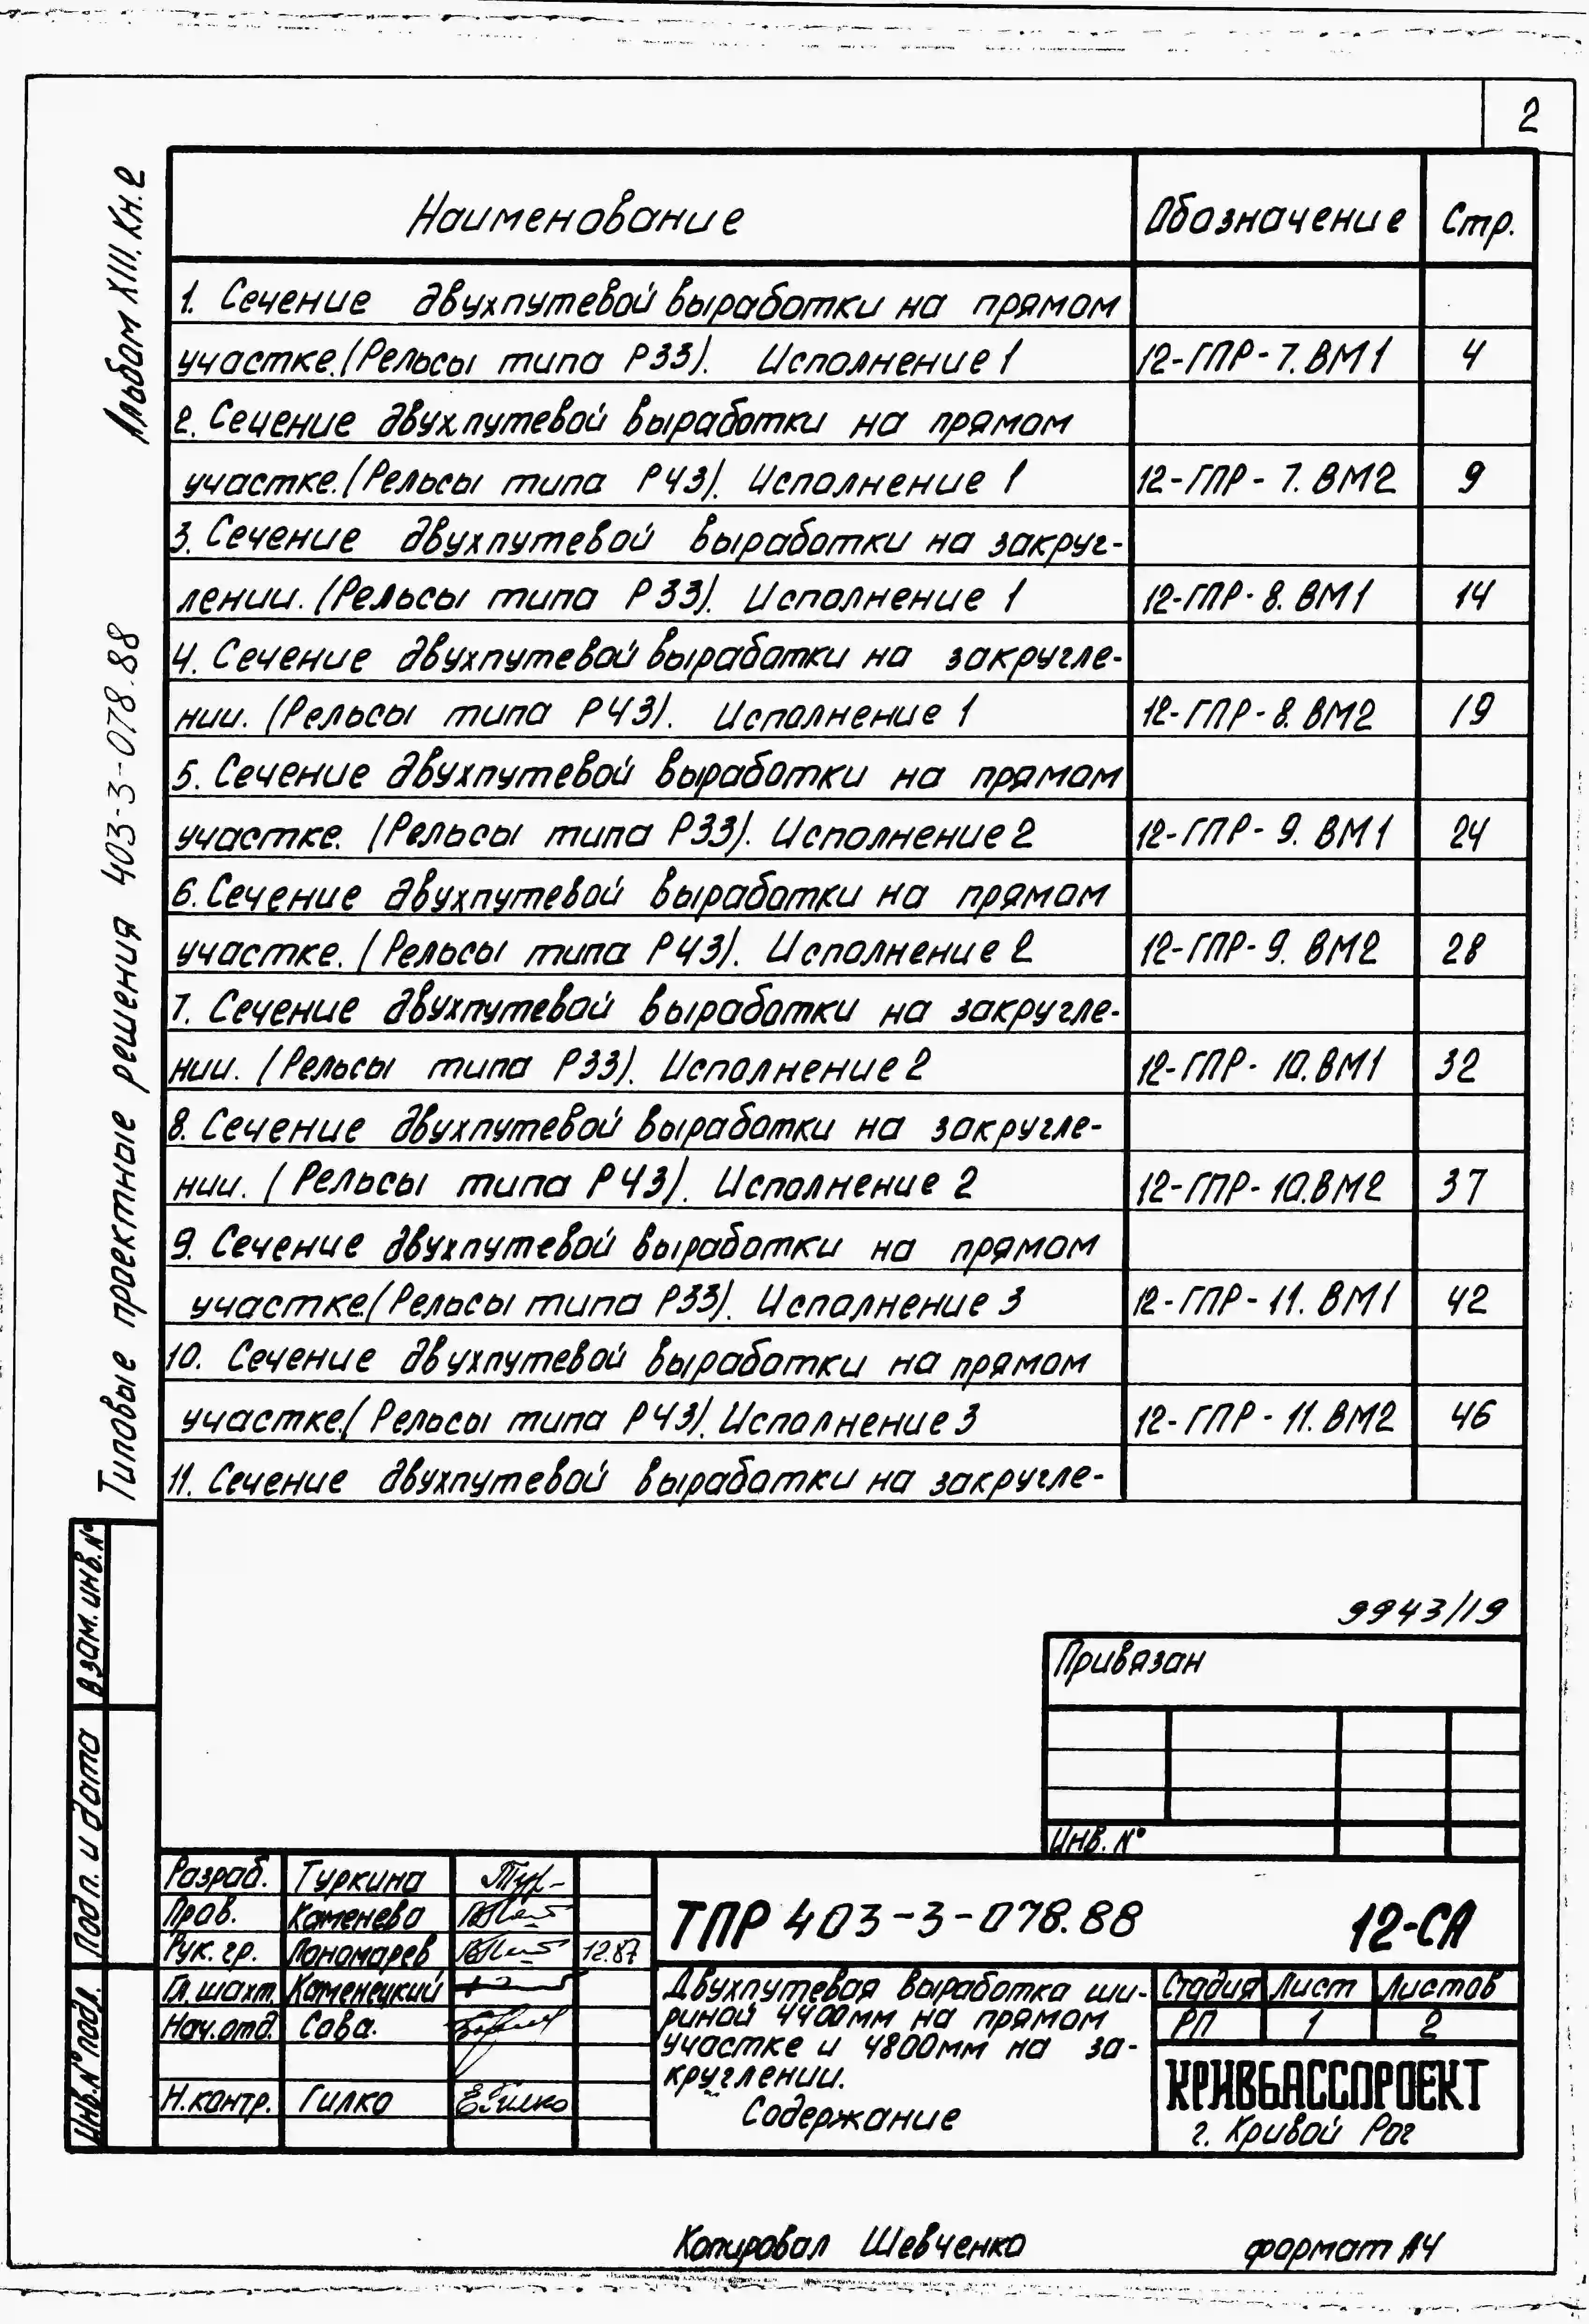 2
Альбом XIII. Кн.2
Типовые проектные решения 403-3-078.88
Наименование Обозначение Стр.
1. Сечение двухпутевой выработки на прямом
участке.(Рельсы типа Р33). Исполнение 1 12-ГПР-7.ВМ1 4
2. Сечение двухпутевой выработки на прямом
участке.(Рельсы типа Р43). Исполнение 1 12-ГПР-7.ВМ2 9
3. Сечение двухпутевой выработки на закруг-
лении.(Рельсы типа Р33). Исполнение 1 12-ГПР-8.ВМ1 14
4. Сечение двухпутевой выработки на закругле-
нии.(Рельсы типа Р43). Исполнение 1 12-ГПР-8.ВМ2 19
5. Сечение двухпутевой выработки на прямом
участке. (Рельсы типа Р33). Исполнение 2 12-ГПР-9.ВМ1 24
6. Сечение двухпутевой выработки на прямом
участке. (Рельсы типа Р43). Исполнение 2 12-ГПР-9.ВМ2 28
7. Сечение двухпутевой выработки на закругле-
нии. (Рельсы типа Р33). Исполнение 2 12-ГПР-10.ВМ1 32
8. Сечение двухпутевой выработки на закругле-
нии. (Рельсы типа Р43). Исполнение 2 12-ГПР-10.ВМ2 37
9. Сечение двухпутевой выработки на прямом
участке.(Рельсы типа Р33). Исполнение 3 12-ГПР-11.ВМ1 42
10. Сечение двухпутевой выработки на прямом
участке.(Рельсы типа Р43). Исполнение 3 12-ГПР-11.ВМ2 46
11. Сечение двухпутевой выработки на закругле-
9943/19
Привязан
Инв. №
Взам. инв. №
Подп. и дата
Инв. № подл.
Разраб. Туркина Тур-
Пров. Каменева
Рук. гр. Пономарев 12.87
Гл. шахт. Каменецкий
Нач. отд. Сова.
Н. контр. Гилко ЕГилко
ТПР 403-3-078.88 12-СА
Двухпутевая выработка ши-
риной 4400мм на прямом
участке и 4800мм на за-
круглении.
Содержание
Стадия Лист Листов
РП 1 2
КРИВБАССПРОЕКТ
г. Кривой Рог
Копировал Шевченко формат А4